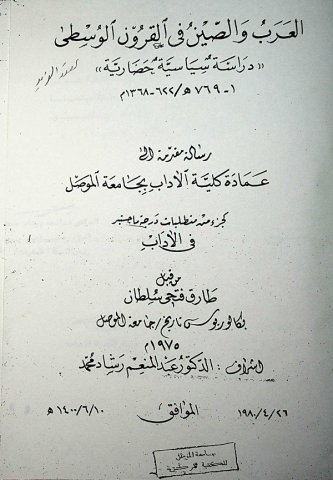 العَرَبُ وَالصِّيْنُ فِى القُرُوْنِ الوُسْطَى
«دِرَاسَة سِيَاسِيَّة حَضَارِيَّة»
١-٧٦٩ﻫ/٦٢٢-١٣٦٨م
رسالة مقدمة الى
عمَادَة كليَّة الآدابِ بجَامعَة المَوصِل
كجزء من متطلبات درجة ماجستير
في الآدَابِ
من قبل
طارق فتحي سُلطان
بكالوريوس تاريخ / جامعة الموصل
١٩٧٥م
اشراف : الدكتور عبد المنعم رشاد محمد
١٩٨٠/٤/٢٦ الموافق ١٤٠٠/٦/١٠ ﻫ
جامعة الموصل
المكتبة المركزية